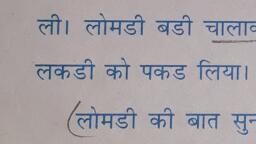 ली। लोमडी बडी
लकडी को पकड लिया।
लोमडी की बात